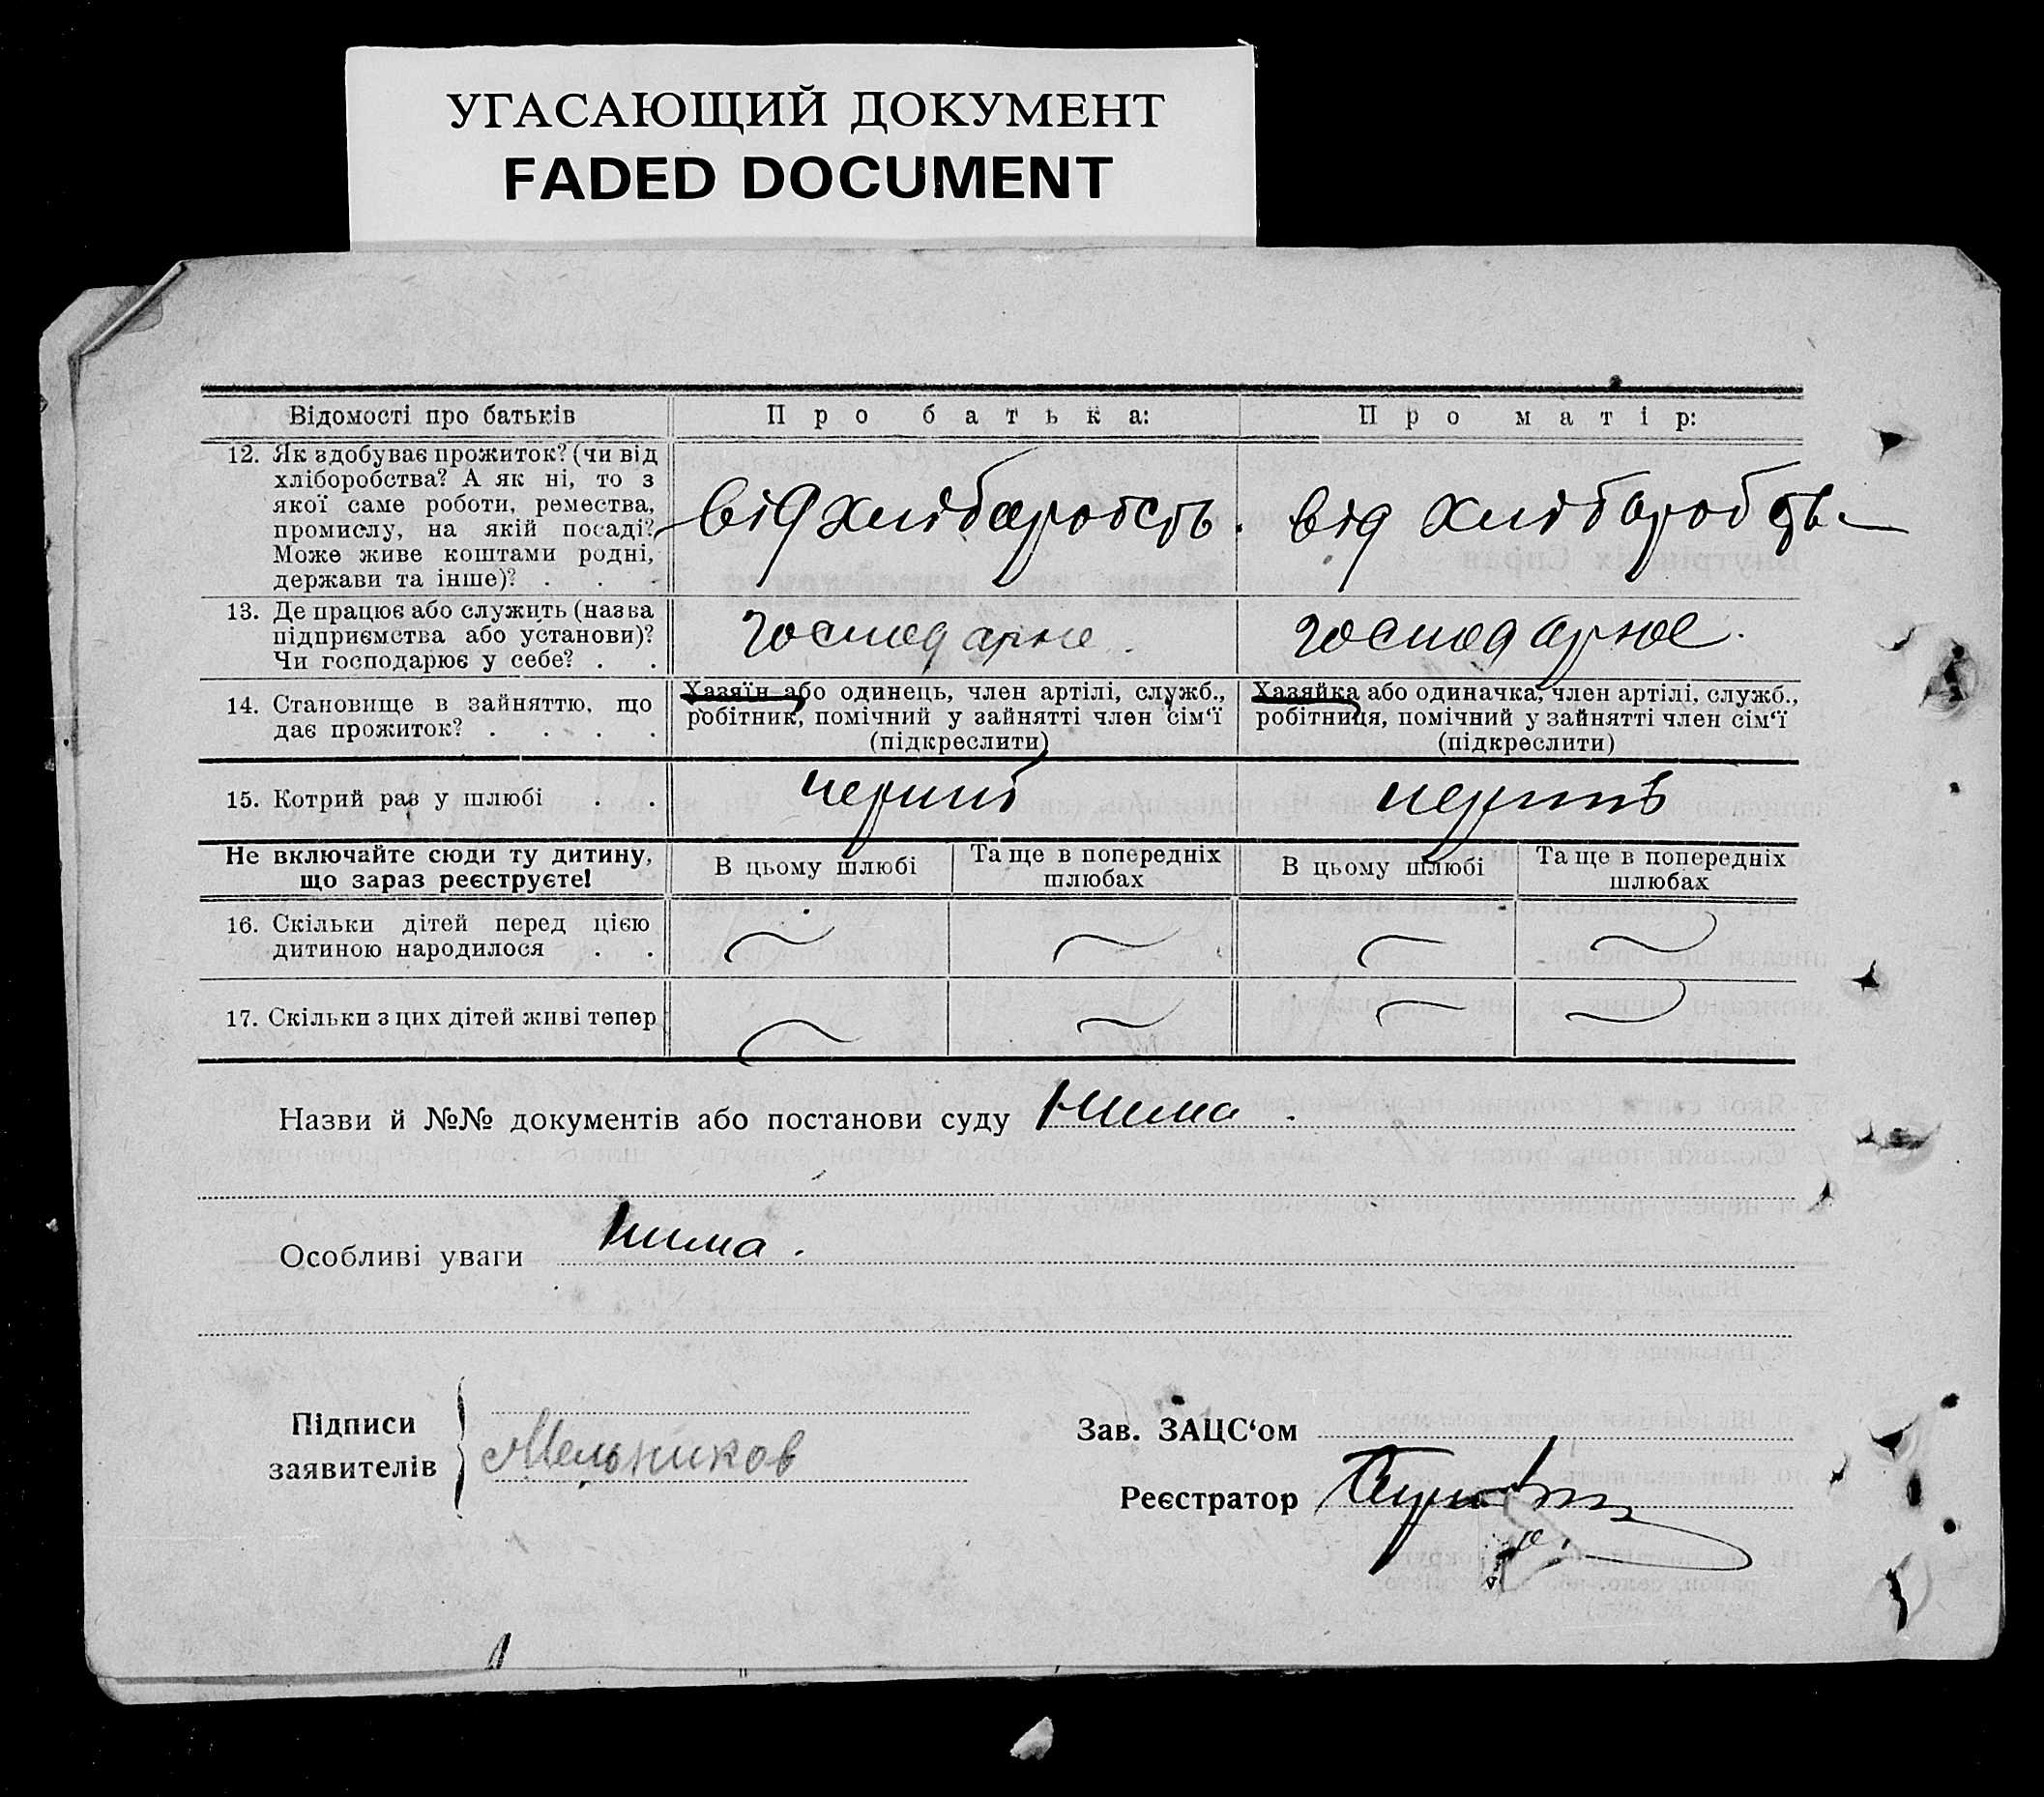 УГАСАЮЩИЙ ДОКУМЕНТ
FADED DOCUMENT
Відомості про батьків
Про батька:
Про матір:
12. Як здобуває прожиток? (чи від
хліборобства? А як ні, то з
якої саме роботи, ремества,
промислу, на якій посаді?
Може живе коштами родні,
держави та інше)? . . .
від хлібаробств.
від хлібаробств
13. Де працює або служить (назва
підприємства або установи)?
Чи господарює у себе? . .
господарює.
господарює.
14. Становище в зайняттю, що
дає прожиток? . . . .
Хазяїн або одинець, член артілі, служб.,
робітник, помічний у зайнятті член сім‘ї
(підкреслити)
Хазяйка або одиначка, член артілі, служб.,
робітниця, помічний у зайнятті член сім‘ї
(підкреслити)
15. Котрий раз у шлюбі . .
Не включайте сюди ту дитину,
що зараз реєструєте!
В цьому шлюбі
Та ще в попередніх
шлюбах
В цьому шлюбі
Та ще в попередніх
шлюбах
16. Скільки дітей перед цією
дитиною народилося . .
17. Скільки з цих дітей живі тепер
Назви й №№ документів або постанови суду Нима .
Особливі уваги Нима .
Підписи
заявителів
Мельников
Зав. ЗАЦС‘ом
Реєстратор